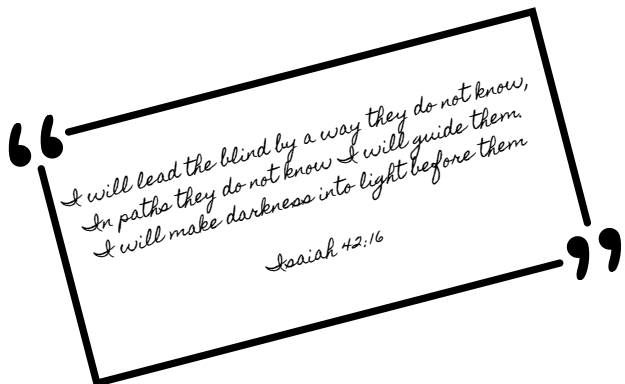 “
I will lead the blind by a way they do not know,
In paths they do not know I will guide them.
I will make darkness into light before them
Isaiah 42:16
”